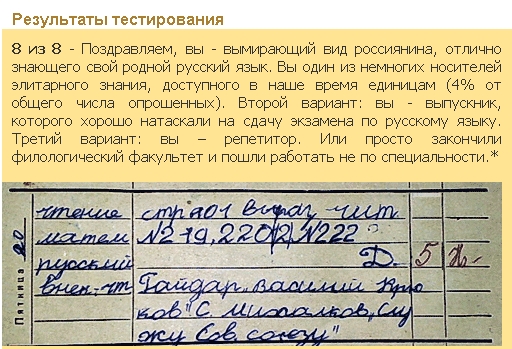 Результаты тестирования
8 из 8 - Поздравляем, вы - вымирающий вид россиянина, отлично
знающего свой родной русский язык. Вы один из немногих носителей
элитарного знания, доступного в наше время единицам (4% от
общего числа опрошенных). Второй вариант: вы - выпускник,
которого хорошо натаскали на сдачу экзамена по русскому языку.
Третий вариант: вы – репетитор. Или просто закончили
филологический факультет и пошли работать не по специальности.*
Пятница 20
чтение стр 201 выраз чит
матем №219, 220(2) №222
русский Д. 5
внек. чт Гайдар, Василий Крю
ков" С. Михалков, Слу
жу Сов. союзу"